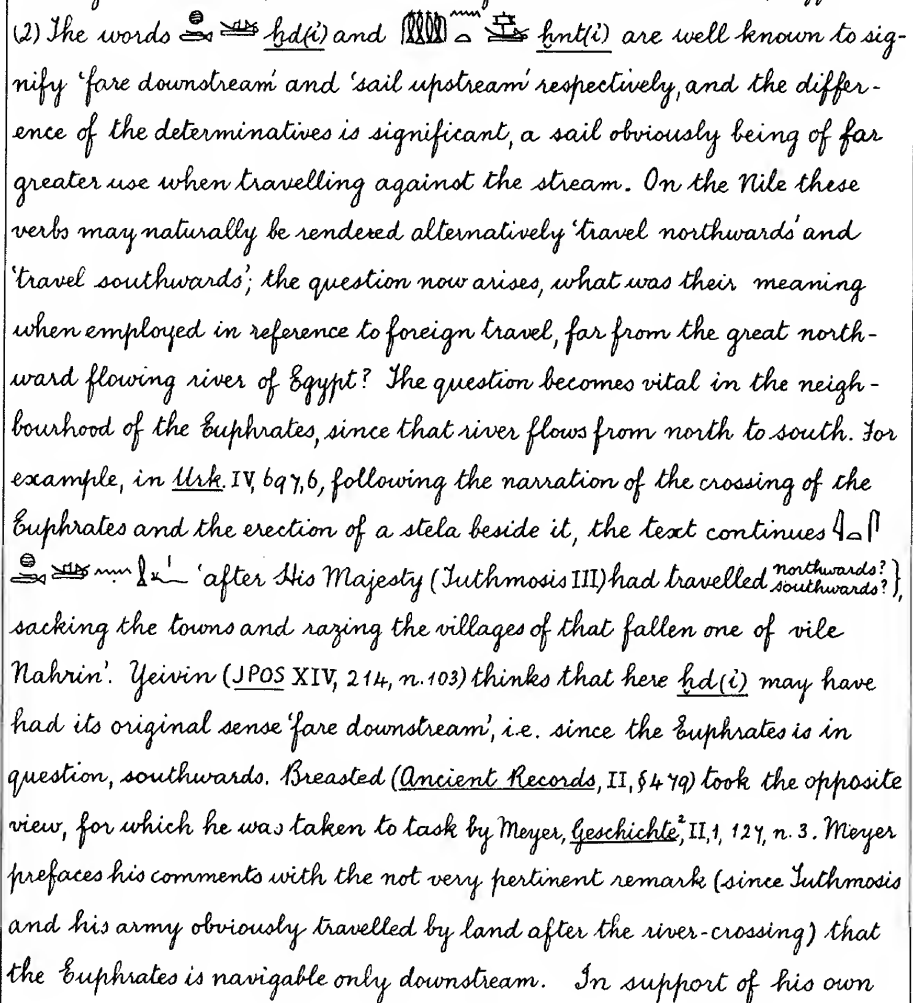 (2) The words 𓐍𓂧𓊛 ḫd(i) and 𓏃𓈖𓏏𓊞 ḫnt(i) are well known to sig-
nify ‘fare downstream’ and ‘sail upstream’ respectively, and the differ-
ence of the determinatives is significant, a sail obviously being of far
greater use when travelling against the stream. On the Nile these
verbs may naturally be rendered alternatively ‘travel northwards’ and
‘travel southwards’; the question now arises, what was their meaning
when employed in reference to foreign travel, far from the great north-
ward flowing river of Egypt? The question becomes vital in the neigh-
bourhood of the Euphrates, since that river flows from north to south. For
example, in Urk. IV, 697,6, following the narration of the crossing of the
Euphrates and the erection of a stela beside it, the text continues
‘after His Majesty (Tuthmosis III) had travelled northwards? southwards? },
sacking the towns and razing the villages of that fallen one of vile
Nahrin’. Yeivin (JPOS XIV, 214, n. 103) thinks that here ḫd(i) may have
had its original sense ‘fare downstream’, i.e. since the Euphrates is in
question, southwards. Breasted (Ancient Records, II, §479) took the opposite
view, for which he was taken to task by Meyer, Geschichte², II,1, 127, n. 3. Meyer
prefaces his comments with the not very pertinent remark (since Tuthmosis
and his army obviously travelled by land after the river-crossing) that
the Euphrates is navigable only downstream. In support of his own